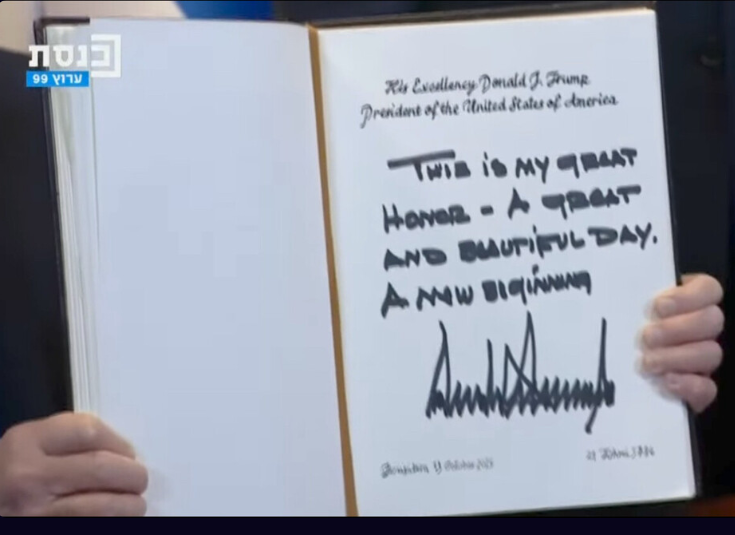 כנסת
ערוץ 99
His Excellency Donald J. Trump
President of the United States of America
THIS IS MY GREAT
HONOR - A GREAT
AND BEAUTIFUL DAY.
A NEW BIGINNING
Jerusalem, 13 October 2025
21 Tishrei, 5786